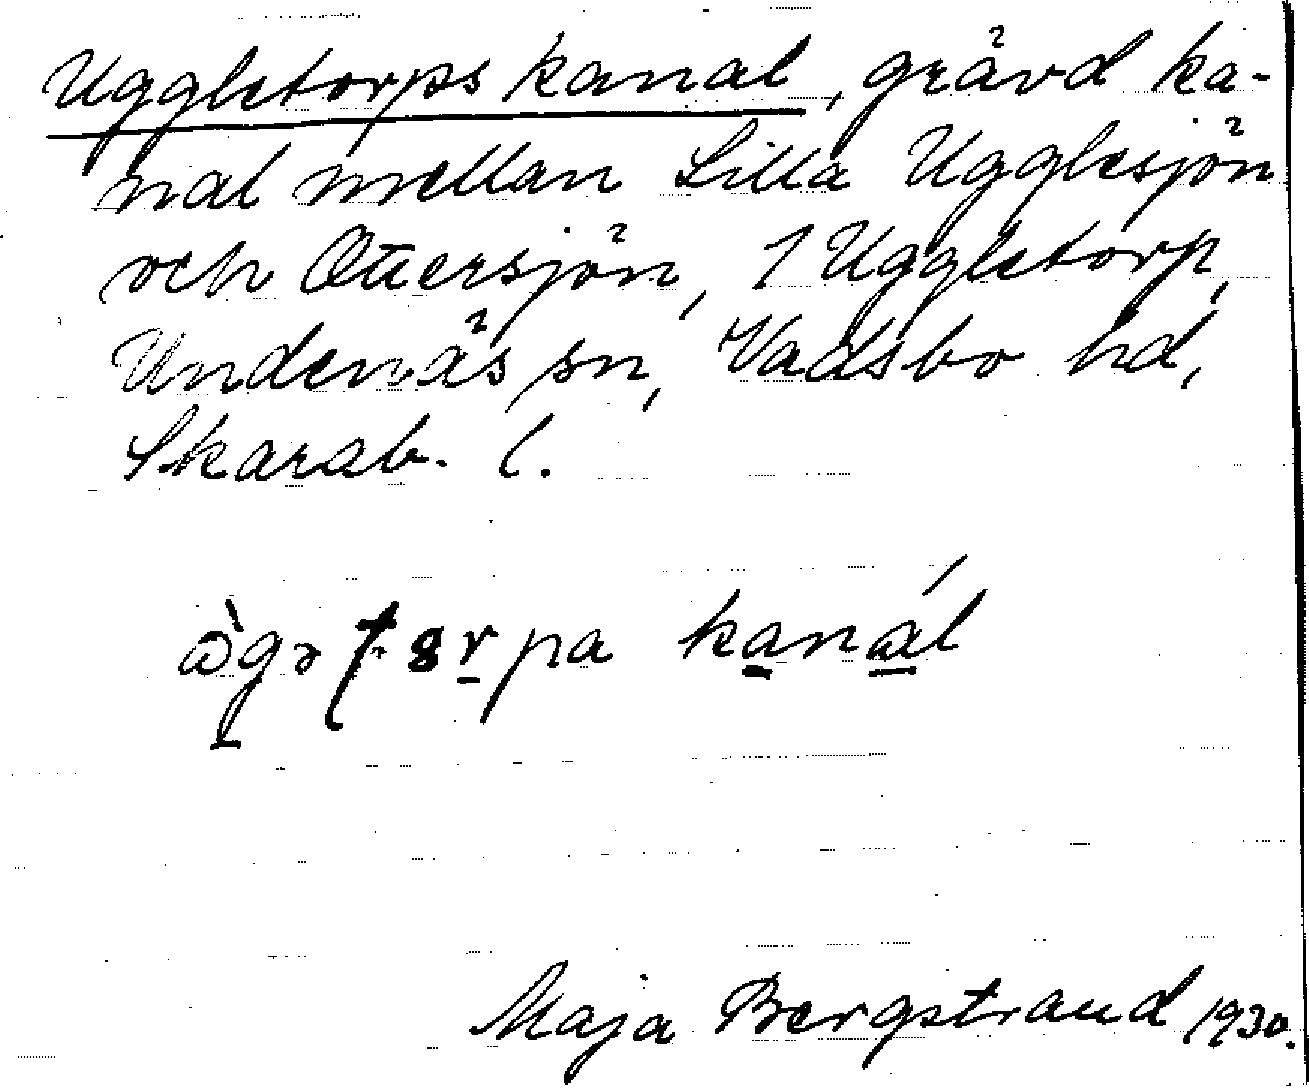 Uggletorps kanal, grävd ka-
nal mellan Lilla Ugglesjön
och Ottersjön, 1 Uggletorp,
Undenäs sn, Vadsbo hd,
Skarab. l.
kanál
Maja Bergstrand 1930.